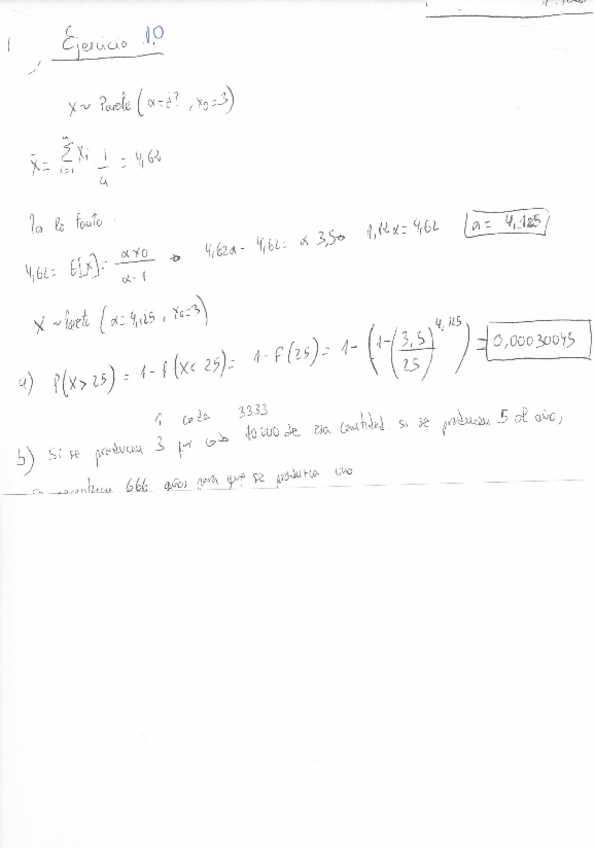 Ejercicio 10
X ~ Pareto (α=¿?, x0=3)
x̄ = Σ xi 1/n = 4,62
Por lo tanto
4,62 = E[X] = αx0/(α-1) → 4,62α - 4,62 = α 3,5 → 1,12α = 4,62 α = 4,125
X ~ Pareto (α=4,125, x0=3)
a) P(X>25) = 1-P(X<25) = 1-F(25) = 1-(1-(3,5/25)^4,125) = 0,00030045
1 cada 3333
b) Si se producen 3 por cada 10000 de esa cantidad si se producen 5 al año,
666 años para que se produzca uno